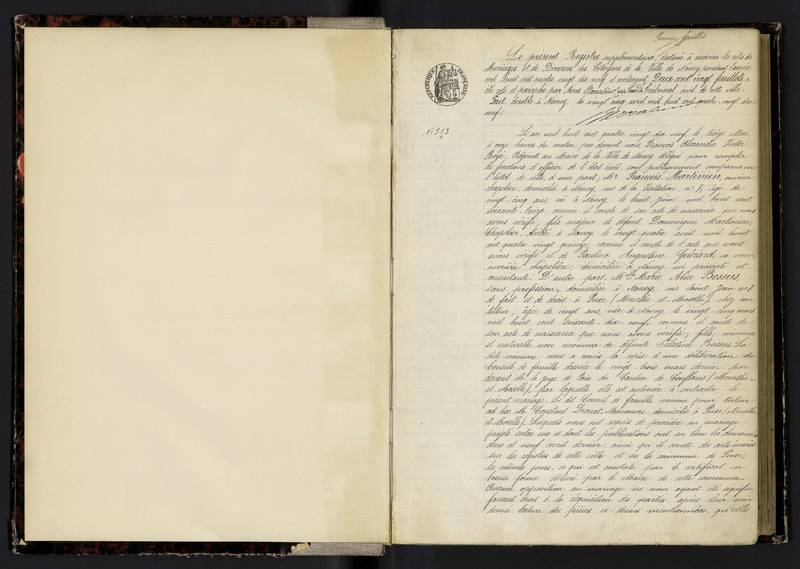 Premier feuillet
Le présent Registre supplémentaire, destiné à recevoir les actes de
Mariages et de Divorces des Citoyens de la Ville de Nancy pendant l'année
mil huit cent quatre vingt dix neuf, et contenant Deux cent vingt feuillets a
été coté et paraphé par Nous Tribunal civil de cette ville.
Fait double à Nancy, le vingt cinq avril mil huit cent quatre vingt dix
neuf.
RÉPUBLIQUE FRANÇAISE
N° 313
L'an mil huit cent quatre vingt dix neuf, le treize Mai
à onze heures du matin, par devant nous François Alexandre Victor
Adjoint au Maire de la Ville de Nancy délégué pour remplir
les fonctions d'officier de l'état civil, sont publiquement comparus en
l'hôtel de ville, d'une part; Mr François Martinien, ouvrier
chapelier, domicilié à Nancy, rue de la Visitation n° 7, âgé de
vingt-cinq ans, né à Nancy le huit juin mil huit cent
soixante-treize, comme il conste de son acte de naissance que nous
avons vérifié, fils majeur de défunt Dominique Martinien,
Chapelier, décédé à Nancy le vingt-quatre avril mil huit
cent quatre-vingt-quinze, comme il conste de l'acte que nous
avons vérifié et de Pauline Augustine Guérard, sa veuve,
ouvrière chapelière, domiciliée à Nancy, ici présente et
consentante. D'autre part, Mlle Marie Alice Bessus,
sans profession, domiciliée à Nancy, rue Saint Jean n°
de fait et de droit à Puxe (Meurthe et Moselle), chez son
tuteur; âgée de vingt ans, née à Nancy le vingt cinq mars
mil huit cent soixante-dix-neuf, comme il conste de
son acte de naissance que nous avons vérifié, fille mineure
et naturelle non reconnue de défunte Célestine Bessus. La
dite mineure nous a remis la copie d'une délibération du
Conseil de famille dressée le vingt trois mars dernier par
devant Mr le juge de Paix du Canton de Conflans (Meurthe
et Moselle), par laquelle elle est autorisée à contracter le
présent mariage. Le dit Conseil de famille nomme pour tuteur
ad hoc Mr Constant Drouot, Manœuvre, domicilié à Puxe (Meurthe
et Moselle). Lesquels nous ont requis de procéder au mariage
projeté entre eux et dont les publications ont eu lieu les dimanches
deux et neuf avril dernier, ainsi qu'il conste des actes inscrits
sur les registres de cette ville et en la commune de Puxe,
les mêmes jours, ce qui est constaté par le certificat en
bonne forme délivré par le Maire de cette commune.
Aucune opposition au mariage ne nous ayant été signifiée
faisant droit à la réquisition des parties, après avoir
donné lecture des pièces ci-dessus mentionnées, qu'elles